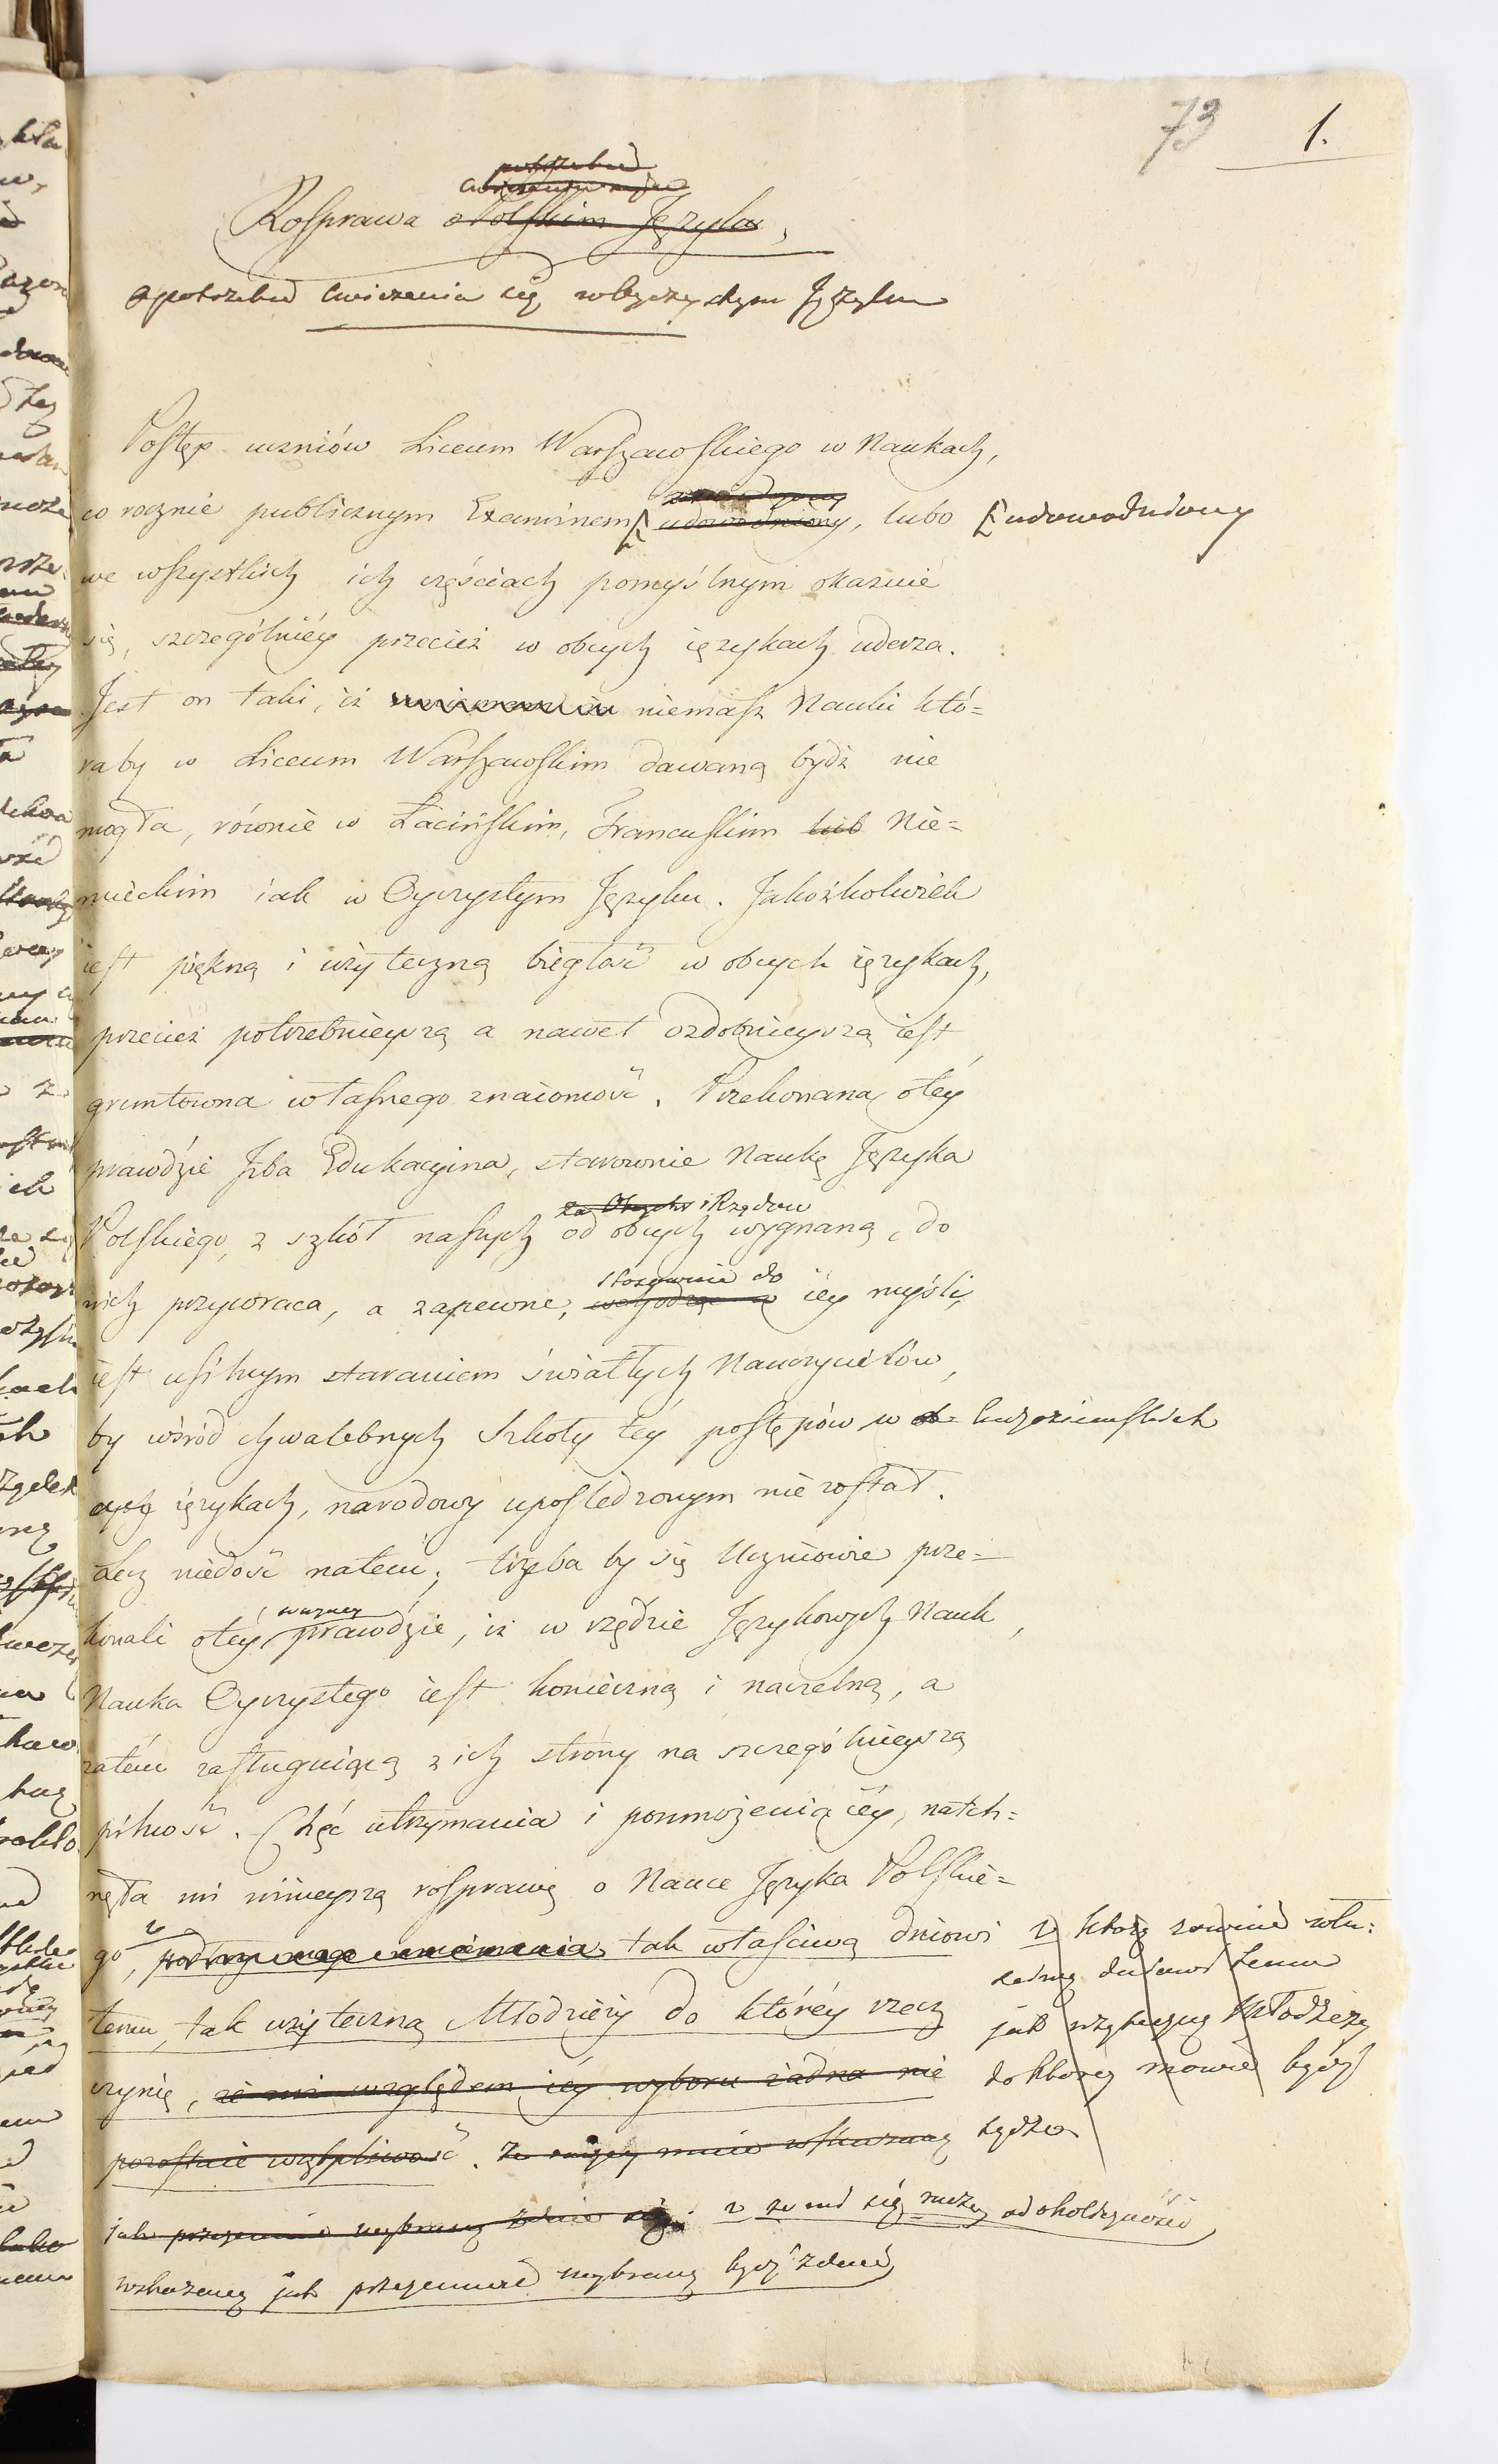 73 1.
potrzebie
Rosprawa o Polskim Języku,
o potrzebie ćwiczenia się w Oyczystym Języku
Postęp uczniów Liceum Warszawskiego w Naukach,
co rocznie publicznym Examinem udowodniony, lubo udowodniony
we wszystkich ich częściach pomyślnym okazuie
się, szczególniéy przecież w obcych ięzykach uderza.
Jest on taki, iż niemasz Nauki któ=
raby w Liceum Warszawskim dawaną bydź nie
mogła, równie w Łacińskim, Francuskim lub Nie=
mieckim iak w Oyczystym Języku. Jakożkolwiek
iest piękną i użyteczną biegłość w obcych ięzykach,
przecież potrzebnieyszą a nawet ozdobnieyszą iest
gruntowna własnego znaiomość. Przekonana o téy
prawdzie Izba Edukacyina, starownie Naukę Języka
za Obcych Rządów
Polskiego, z szkół naszych od obcych wygnaną, do
stosownie do
nich przywraca, a zapewne, wchodząc w iéy myśli,
iest usilnym staraniem światłych Nauczycielów,
by wśród chwalebnych Szkoły téy postępów w ob= cudzoziemskich
cych ięzykach, narodowy upośledzonym nie został.
Lecz niedość natém; trzeba by się Uczniowie prze=
ważney
konali o téy prawdzie, iż w rzędzie Językowych Nauk,
Nauka Oyczystego iest konieczną i naczelną, a
zatém zasługuiącą z ich strony na szczególnieyszą
pilność. Chęć utrzymania i pomnożenia iéy, natch=
nęła mi ninieyszą rosprawę o Nauce Języka Polskie=
go, tak właściwą dniowi
temu, tak użyteczną Młodzieży do któréy rzecz
czynię, że mi względem iéy wyboru żadna nie
pozostaie wątpliwość. że raczey mnie wskazaną
iak przezemnie wybraną zdaie się
z któréy równie wła=
ściwą dniowi temu
jak użyteczną Młodzieży
do któréy mówię bydź
sądzę
że mi się raczey od okoliczności
wskazaną jak przezemnie wybraną bydź zdaie